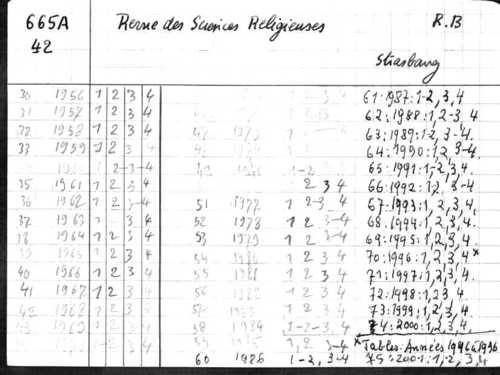 665A
42
Revue des Sciences Religieuses
R.B
Strasbourg
30 1956 1 2 3 4
31 1957 1 2 3 4
32 1958 1 2 3 4
33 1959 1 2 3 4
2-3-4
35 1961 1 2 3 4
36 1962 1 2 3-4
37 1963 1 3 4
38 1964 1 2 3 4
39 1965 1 2 3 4
40 1966 1 2 3 4
41 1967 1 2 3 4
42 1968
43 1969
1-2
2 3 4
51 1977 1 2-3 4
52 1978 1 2 3-4
53 1979 1 2 3-4
54 1980 1 2 3 4
55 1981 1 2 3 4
56 1982 1 2 3 4
57 1983 1 2 3 4
58 1984 1-2-3, 4
59 1985 1, 2 3-4
60 1986 1-2, 3-4
61:1987:1-2, 3, 4
62:1988:1, 2-3 4.
63:1989:1-2, 3-4.
64:1990:1, 2, 3-4.
65:1991:1, 2, 3, 4.
66:1992:1, 2, 3-4
67:1993:1, 2, 3, 4.
68:1994:1, 2, 3, 4.
69:1995:1, 2, 3, 4.
70:1996:1, 2, 3, 4*
71:1997:1, 2, 3, 4.
72:1998:1, 2 3, 4.
73:1999:1, 2, 3, 4.
74:2000:1, 2, 3, 4.
*Tables: Années 1946 à 1996
75:2001:1, 2, 3, 4